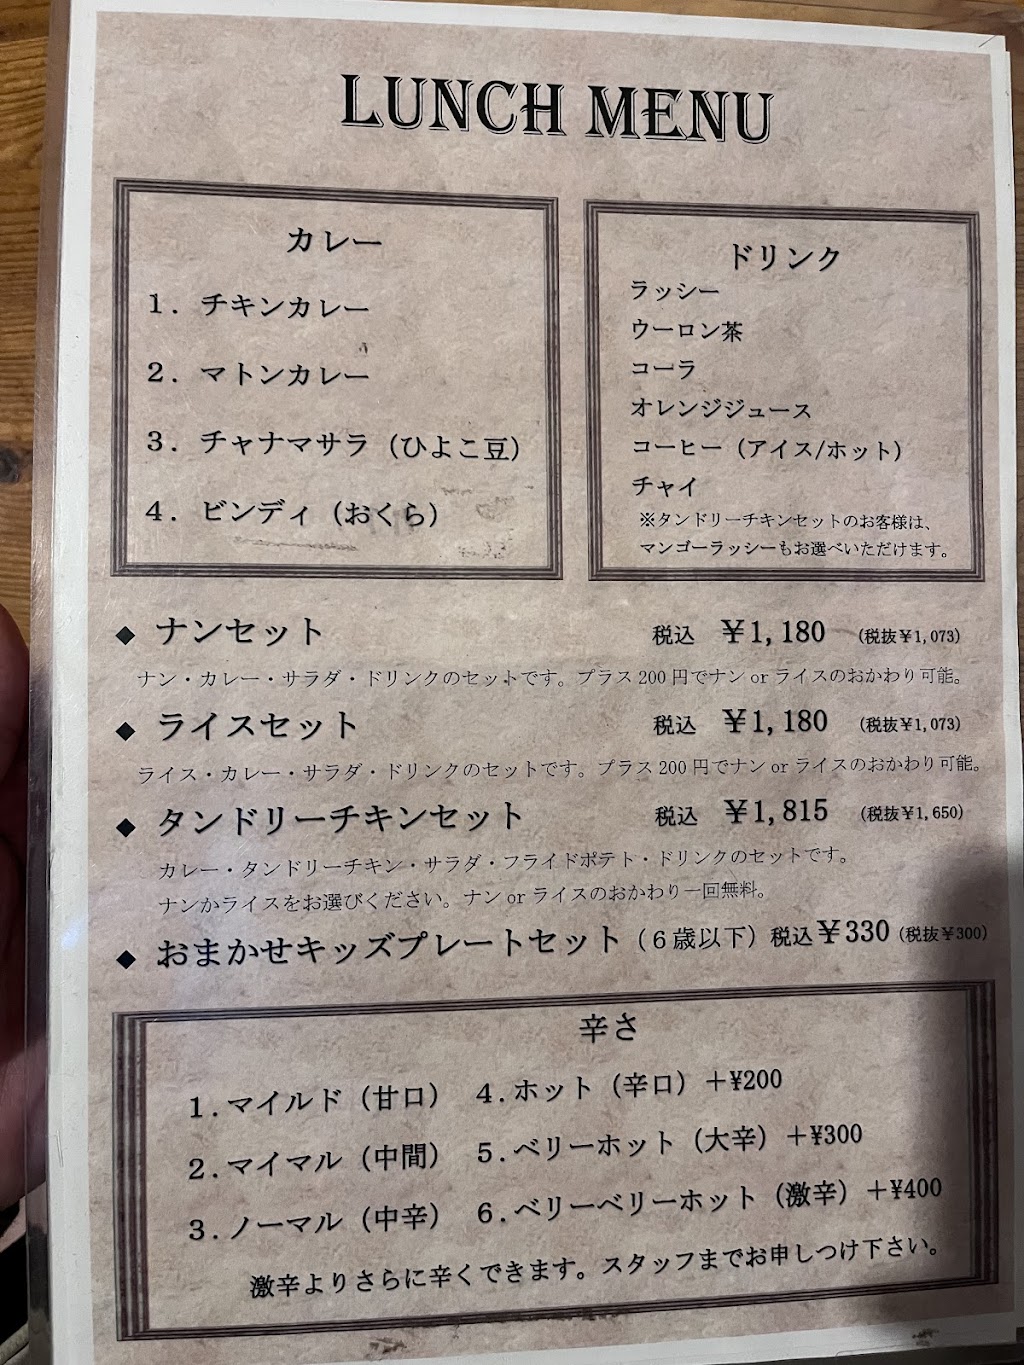 LUNCH MENU
カレー
1. チキンカレー
2. マトンカレー
3. チャナマサラ（ひよこ豆）
4. ビンディ（おくら）
ドリンク
ラッシー
ウーロン茶
コーラ
オレンジジュース
コーヒー（アイス/ホット）
チャイ
※タンドリーチキンセットのお客様は、
マンゴーラッシーもお選べいただけます。
◆ ナンセット 税込 ￥1,180 （税抜￥1,073）
ナン・カレー・サラダ・ドリンクのセットです。プラス200円でナン or ライスのおかわり可能。
◆ ライスセット 税込 ￥1,180 （税抜￥1,073）
ライス・カレー・サラダ・ドリンクのセットです。プラス200円でナン or ライスのおかわり可能。
◆ タンドリーチキンセット 税込 ￥1,815 （税抜￥1,650）
カレー・タンドリーチキン・サラダ・フライドポテト・ドリンクのセットです。
ナンかライスをお選びください。ナン or ライスのおかわり一回無料。
◆ おまかせキッズプレートセット（６歳以下）税込￥330（税抜￥300）
辛さ
1. マイルド（甘口） 4. ホット（辛口）＋¥200
2. マイマル（中間） 5. ベリーホット（大辛）＋¥300
3. ノーマル（中辛） 6. ベリーベリーホット（激辛）＋¥400
激辛よりさらに辛くできます。スタッフまでお申しつけ下さい。